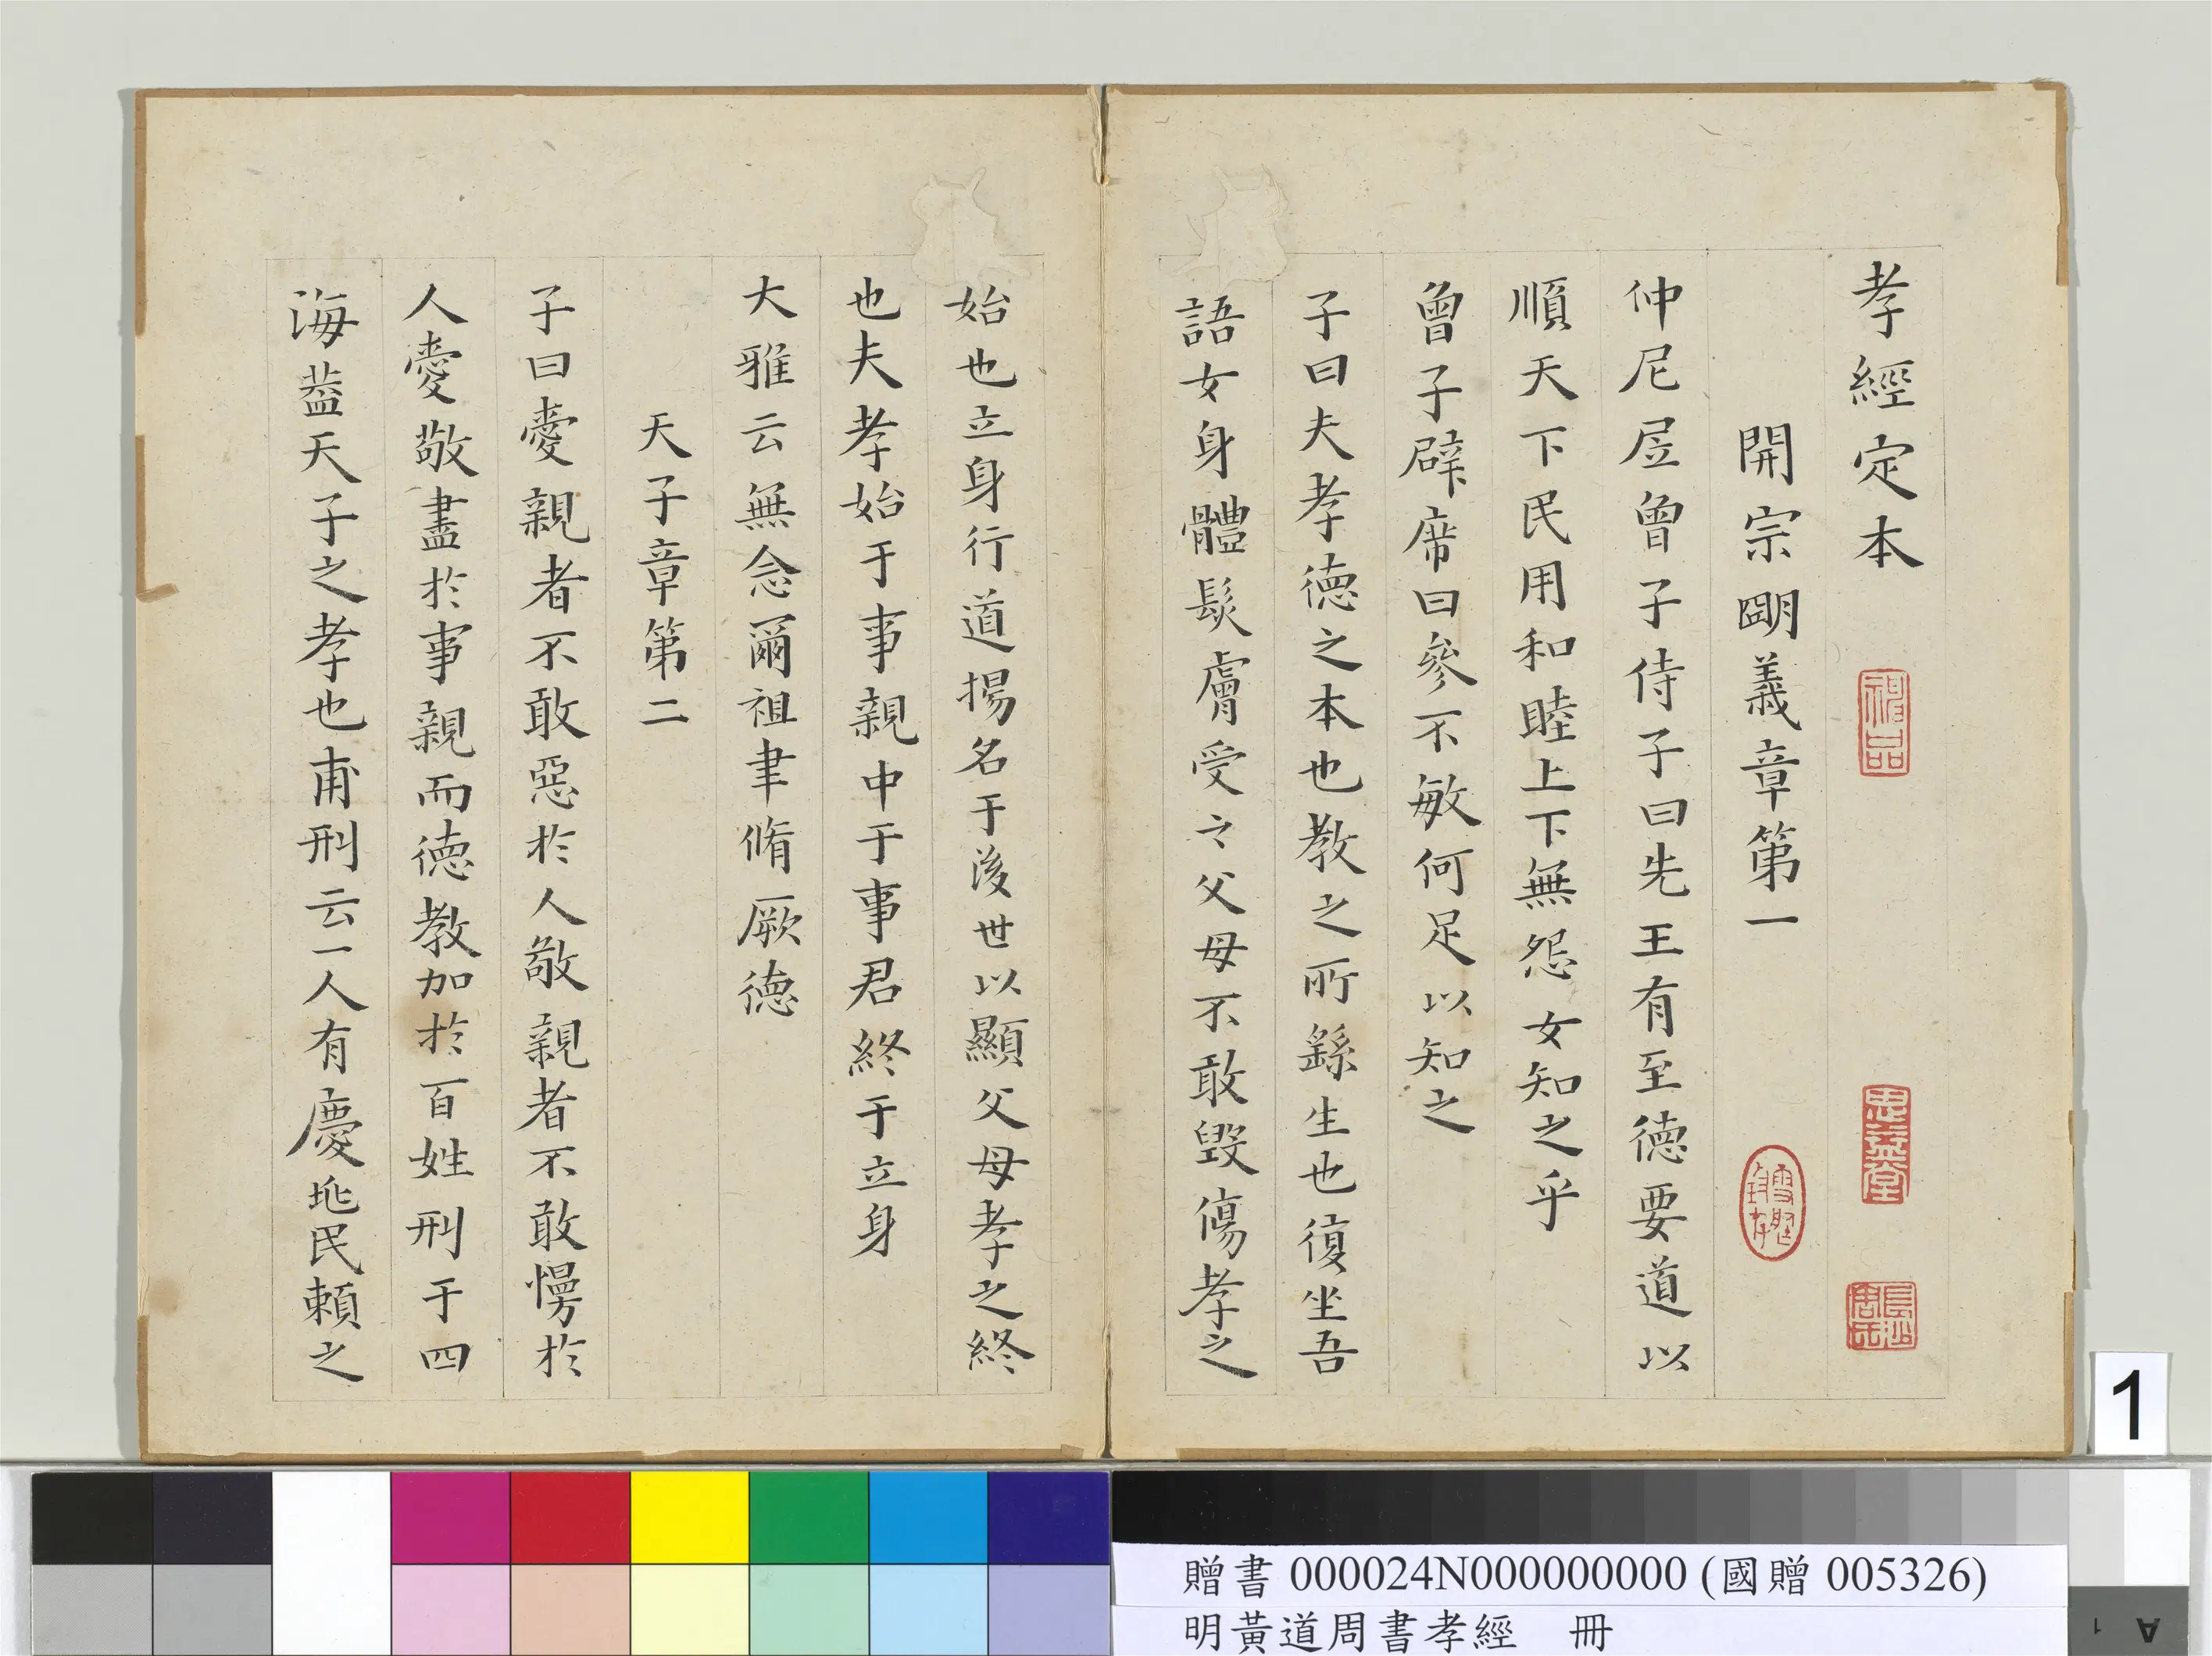 孝經定本
開宗朙義章第一
仲尼凥曾子侍子曰先王有至德要道以
順天下民用和睦上下無怨女知之乎
曾子辟席曰參不敏何足以知之
子曰夫孝德之本也教之所繇生也復坐吾
語女身體髮膚受之父母不敢毀傷孝之
始也立身行道揚名于後世以顯父母孝之終
也夫孝始于事親中于事君終于立身
大雅云無念爾祖聿脩厥德
天子章第二
子曰愛親者不敢惡於人敬親者不敢慢於
人愛敬盡於事親而德教加於百姓刑于四
海葢天子之孝也甫刑云一人有慶兆民賴之
思益堂
1
贈書 000024N000000000 (國贈 005326)
明黃道周書孝經 冊
A 1